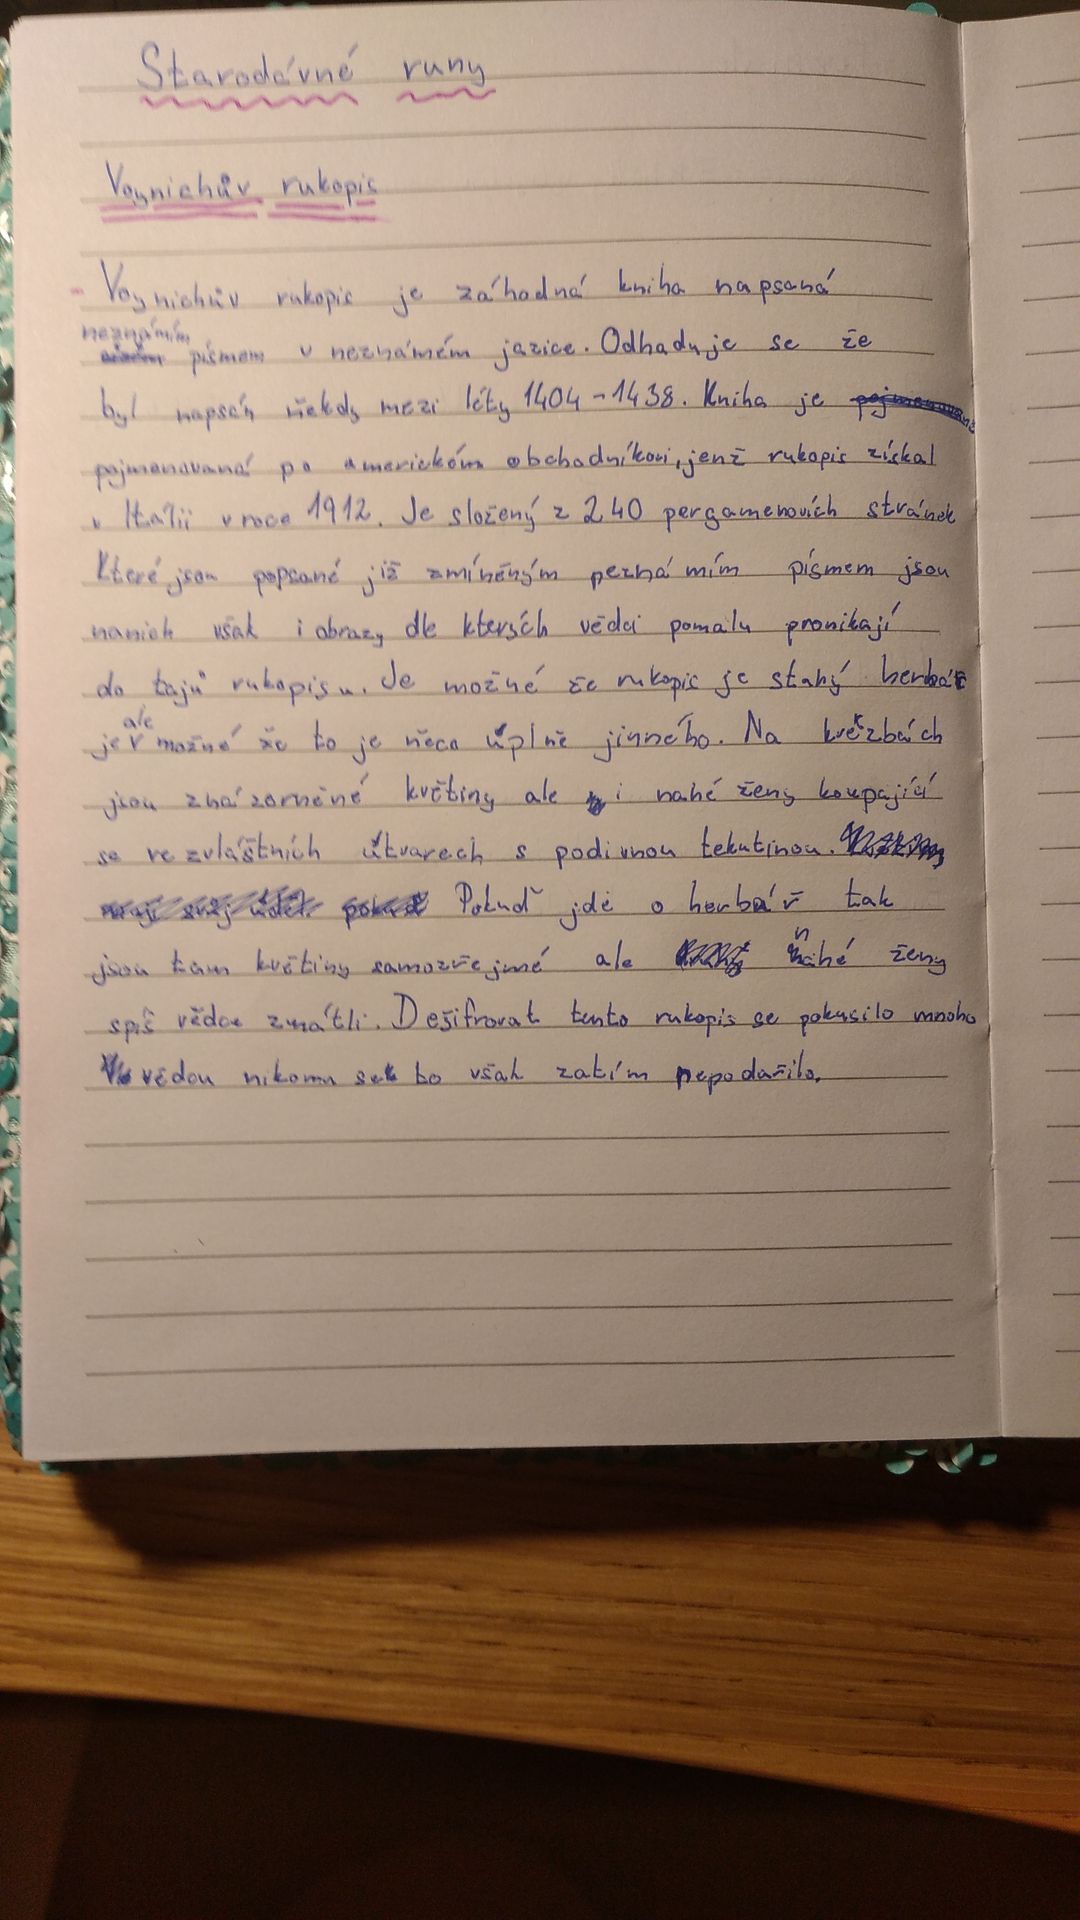 Starodávné runy
Voynichův rukopis
- Voynichův rukopis je záhadná kniha napsaná
neznámím
písmem v neznámém jazice. Odhaduje se že
byl napsán někdy mezi léty 1404 - 1438. Kniha je pojmenovaná
pojmenovaná po americkém obchodníkovi, jenž rukopis získal
v Itálii v roce 1912. Je složený z 240 pergamenovích stránek
Které jsou popsané již zmíněným neznámím písmem jsou
nanich však i obrazy dle kterích vědci pomalu pronikají
do tajů rukopisu. Je možné že rukopis je starý herbář
ale
je možné že to je něco úplně jinného. Na kresbách
jsou znázorněné květiny ale i nahé ženy koupající
se ve zvláštních útvarech s podivnou tekutinou.
Pokuď jde o herbář tak
jsou tam květiny samozřejmé ale nahé ženy
spíš vědce zmátli. Dešifrovat tento rukopis se pokusilo mnoho
vědců nikomu se to však zatím nepodařilo.